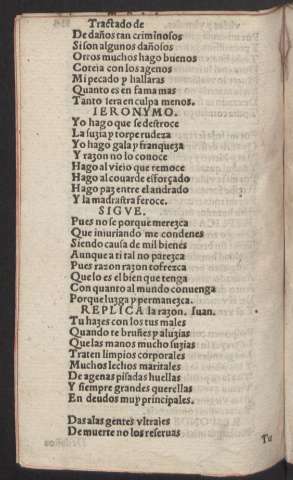 Tractado de
De daños tan criminosos
Si son algunos dañosos
Otros muchos hago buenos
Coteja con los agenos
Mi pecado y hallaras
Quanto es en fama mas
Tanto sera en culpa menos.
IERONYMO.
Yo hago que se destroce
La suzia y torpe rudeza
Yo hago gala y franqueza
Y razon no lo conoce
Hago al viejo que remoce
Hago al couarde esforçado
Hago paz entre el andrado
Y la madrastra feroce.
SIGVE.
Pues no se porque merezca
Que iniuriando me condenes
Siendo causa de mil bienes
Aunque a ti tal no parezca
Pues razon razon te ofrezca
Que lo es el bien que tenga
Con quanto al mundo conuenga
Porque luzga y permanezca.
REPLICA la razon. Iuan.
Tu hazes con los tus males
Quando te bruñes y aluzias
Que las manos mucho suzias
Traten limpios corporales
Muchos lechos maritales
De agenas pisadas huellas
Y siempre grandes querellas
En deudos muy principales.
Das a las gentes vltrajes
De muerte no los reseruas
Tu